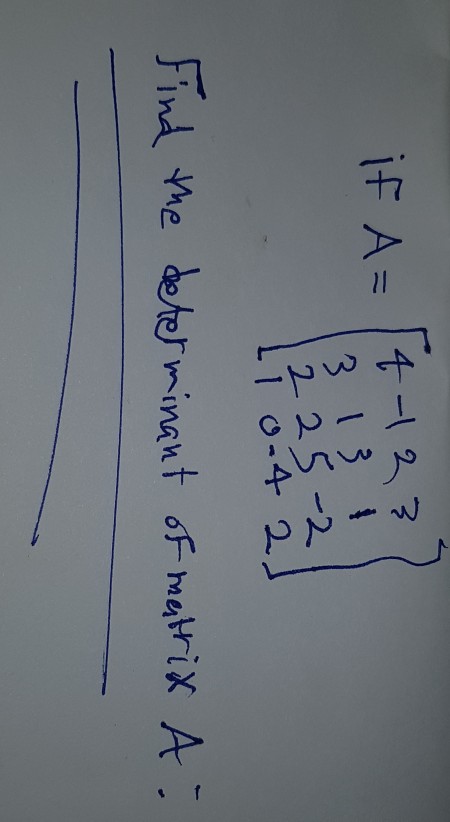 if A = [4 -1 2 3
3 1 3 1
2 2 5 -2
1 0 -4 2]
Find the determinant of matrix A: